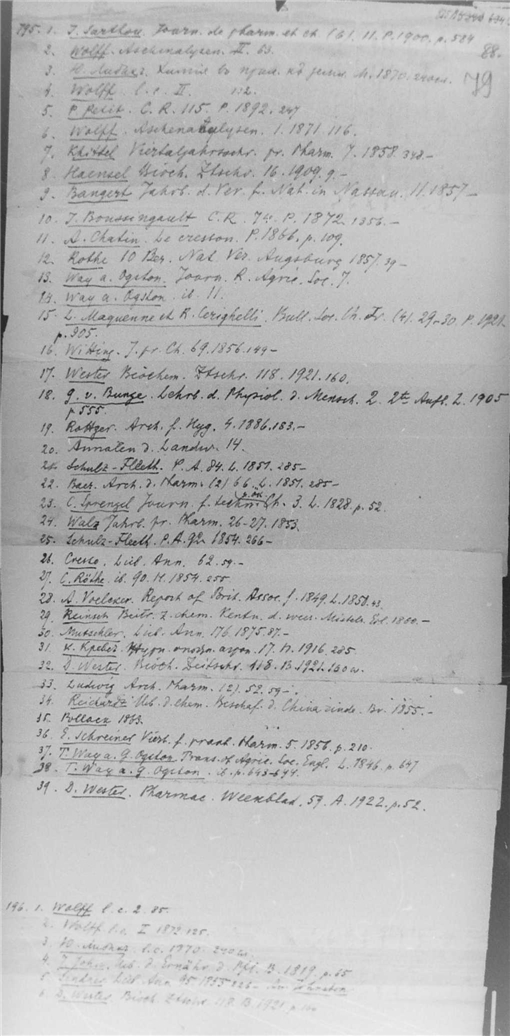 88.
79
195. 1. J. Sartlou. Journ. de pharm. et ch. (6). 11. P. 1900. p. 584
2. Wolff. Aschenalysen. II. 63.
3. 1870.
4. Wolff l. c. II. 1:2.
5. P. Petit. C. R. 115. P. 1892. 247
6. Wolff. Aschenalysen. 1. 1871. 116.
7. Khittel Viertaljahrsschr. pr. Pharm. 7. 1858. 348.–
8. Haensel Bioch. Ztschr. 16. 1909. 9.–
9. Bangert Jahrb. d. Ver. f. Nat. in Nassau. 11. 1857–
10. J. Boussingault C. R. 74. P. 1872. 1353.–
11. A. Chatin. Le cresson. P. 1866. p. 109.
12. Rothe 10 Ber. Nat. Ver. Augsburg 1857 39–
13. Way a. Ogston. Journ. R. Agric. Soc. 7.
14. Way a. Ogston. it. 11.
15. L. Maquenne et R. Cerighelli. Bull. Soc. Ch. Fr. (4). 29–30. P. 1921.
p. 905.
16. Witting. J. pr. Ch. 69. 1856. 149–
17. Wester Biochem. Ztschr. 118. 1921. 160.
18. G. v. Bunge. Lehrb. d. Physiol. d. Mensch. 2. 2te Aufl. L. 1905
p. 555.
19. Rottger. Arch. f. Hyg. 4. 1886. 183.–
20. Annalen d. Landw. 14.
21. Schulz-Fleeth. P. A. 84. L. 1851. 285–
22. Baer. Arch. d. Pharm. (2) 66. L. 1851. 285–
23. C. Sprengel Journ. f. techn. Ch. 3. L. 1828. p. 52.
24. Walz Jahrb. pr. Pharm. 26–27. 1853.
25. Schulz-Fleeth. P. A. 92. 1854. 266–
26. Cresto. Lieb. Ann. 62. 59.–
27. C. Röthe. it. 90. H. 1854. 255.
28. A. Voelcker. Report of Brit. Assoc. f. 1849. L. 1850. 43.
29. Reinsch Beitr. z. chem. Kentn. d. weis. Mistele. Erl. 1860.–
30. Mutschler. Lieb. Ann. 176. 1875. 87.–
31. 17. 1916. 285.
32. D. Wester. Bioch. Zeitschr. 118. B. 1921.
33. Ludwig Arch. Pharm. (2). 52. 59–.
34. Reichardt Üb. d. chem. Beschaf. d. China rinde. Br. 1855.–
35. 1863.
36. E. Schreiner Vierb. f. praat. Pharm. 5. 1856. p. 210.
37. T. Way a. G. Ogston Trans. of Agric. Soc. Engl. L. 1846. p. 647
38. T. Way a. G. Ogston. it. p. 643–644.
39. D. Wester. Pharmac. Weekblad. 59. A. 1922. p. 52.
196. 1. Wolff l. c. 2. 85.
2. Wolff l. c. I 1872 125.
3. l. c. 1970.
4. Üb. d. Ernähr. d. Pfl. B. 1819. p. 65
5. Lieb. Ann.
6. D. Wester Bioch. Ztschr. 118. B. 1921. p.